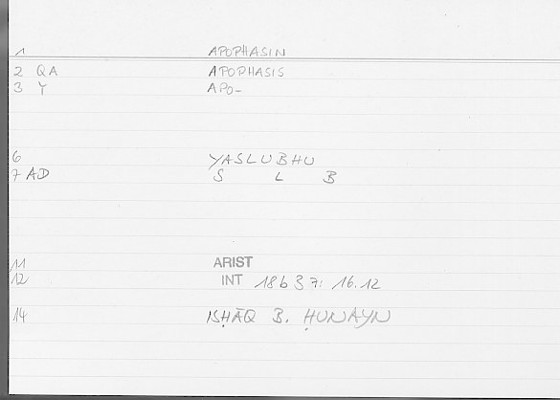 1 APOPHASIN
2 QA APOPHASIS
3 Y APO-
6 YASLUBHU
7 AD S L B
11 ARIST
12 INT 18b37: 16.12
14 ISḤĀQ B. ḤUNAYN